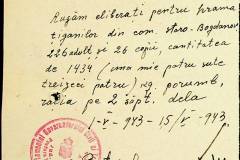 Rugăm eliberați pentru hrana
țiganilor din com. staro-Bogdanov
226 adulți și 26 copii, cantitatea
de 1434 (una mie patru sute
treizeci patru) kg porumb,
rația pe 2 săpt. dela
1-V-943 - 15/V-943